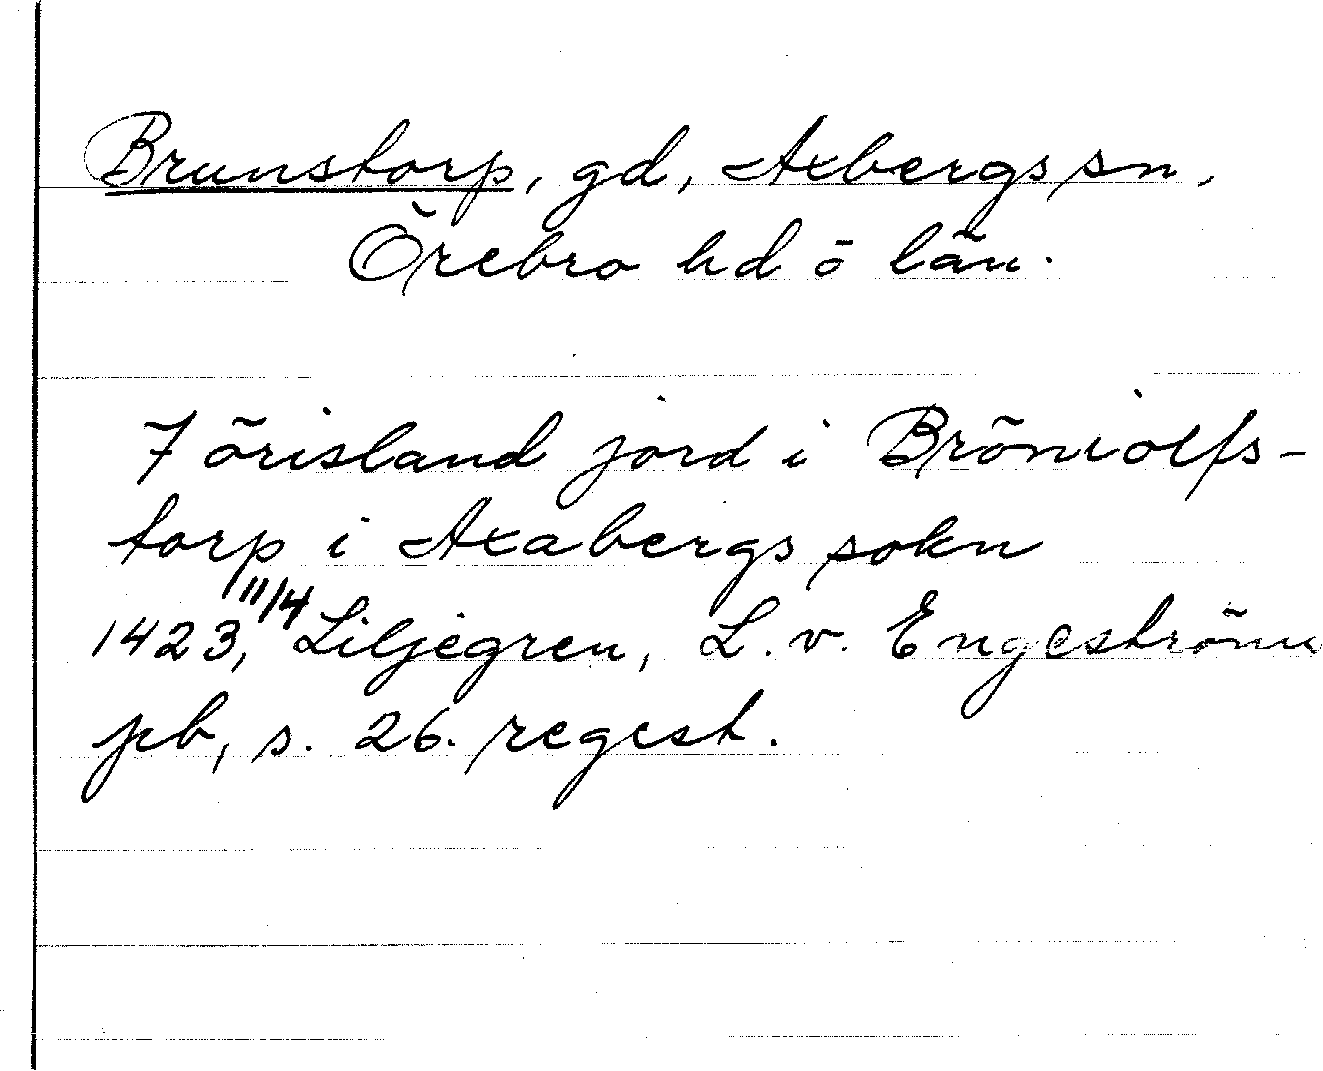 Brunstorp, gd, Axbergs sn,
Örebro hd ö län.
7 örisland jord i Bröniolfs-
torp i Axabergs sokn
1423, 11/4 Liljegren, L. v. Engeström
pb, s. 26. regest.